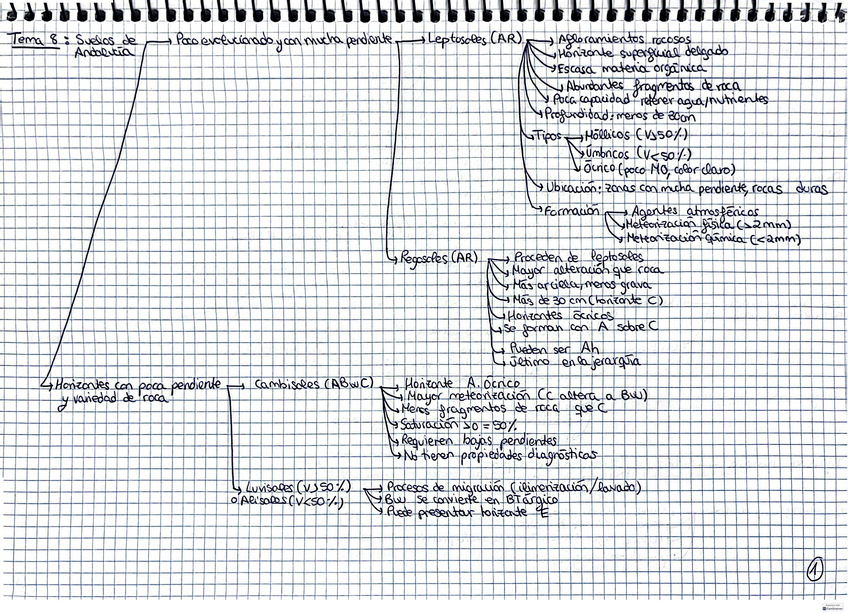 Tema 8: Suelos de Andalucía
Poco evolucionado y con mucha pendiente
Leptosoles (AR)
Afloramientos rocosos
Horizonte superficial delgado
Escasa materia orgánica
Abundantes fragmentos de roca
Poca capacidad retener agua/nutrientes
Profundidad: menos de 30cm
Tipos
Móllicos (V≥50%)
Úmbricos (V<50%)
Ócrico (poco MO, color claro)
Ubicación: zonas con mucha pendiente, rocas duras
Formación
Agentes atmosféricos
Meteorización física (>2mm)
Meteorización química (<2mm)
Regosoles (AR)
Proceden de leptosoles
Mayor alteración que roca
Más arcilla, menos grava
Más de 30 cm (horizonte C)
Horizontes ócricos
Se forman con A sobre C
Pueden ser Ah
Último en la jerarquía
Horizontes con poca pendiente
y variedad de roca
Cambisoles (ABwC)
Horizonte A. Ócrico
Mayor meteorización (C altera a Bw)
Menos fragmentos de roca que C
Saturación > o = 50%
Requieren bajas pendientes
No tienen propiedades diagnósticas
Luvisoles (V≥50%)
o Alisoles (V<50%)
Procesos de migración (ilimerización/lavado)
Bw se convierte en BTárgico
Puede presentar horizonte E
1